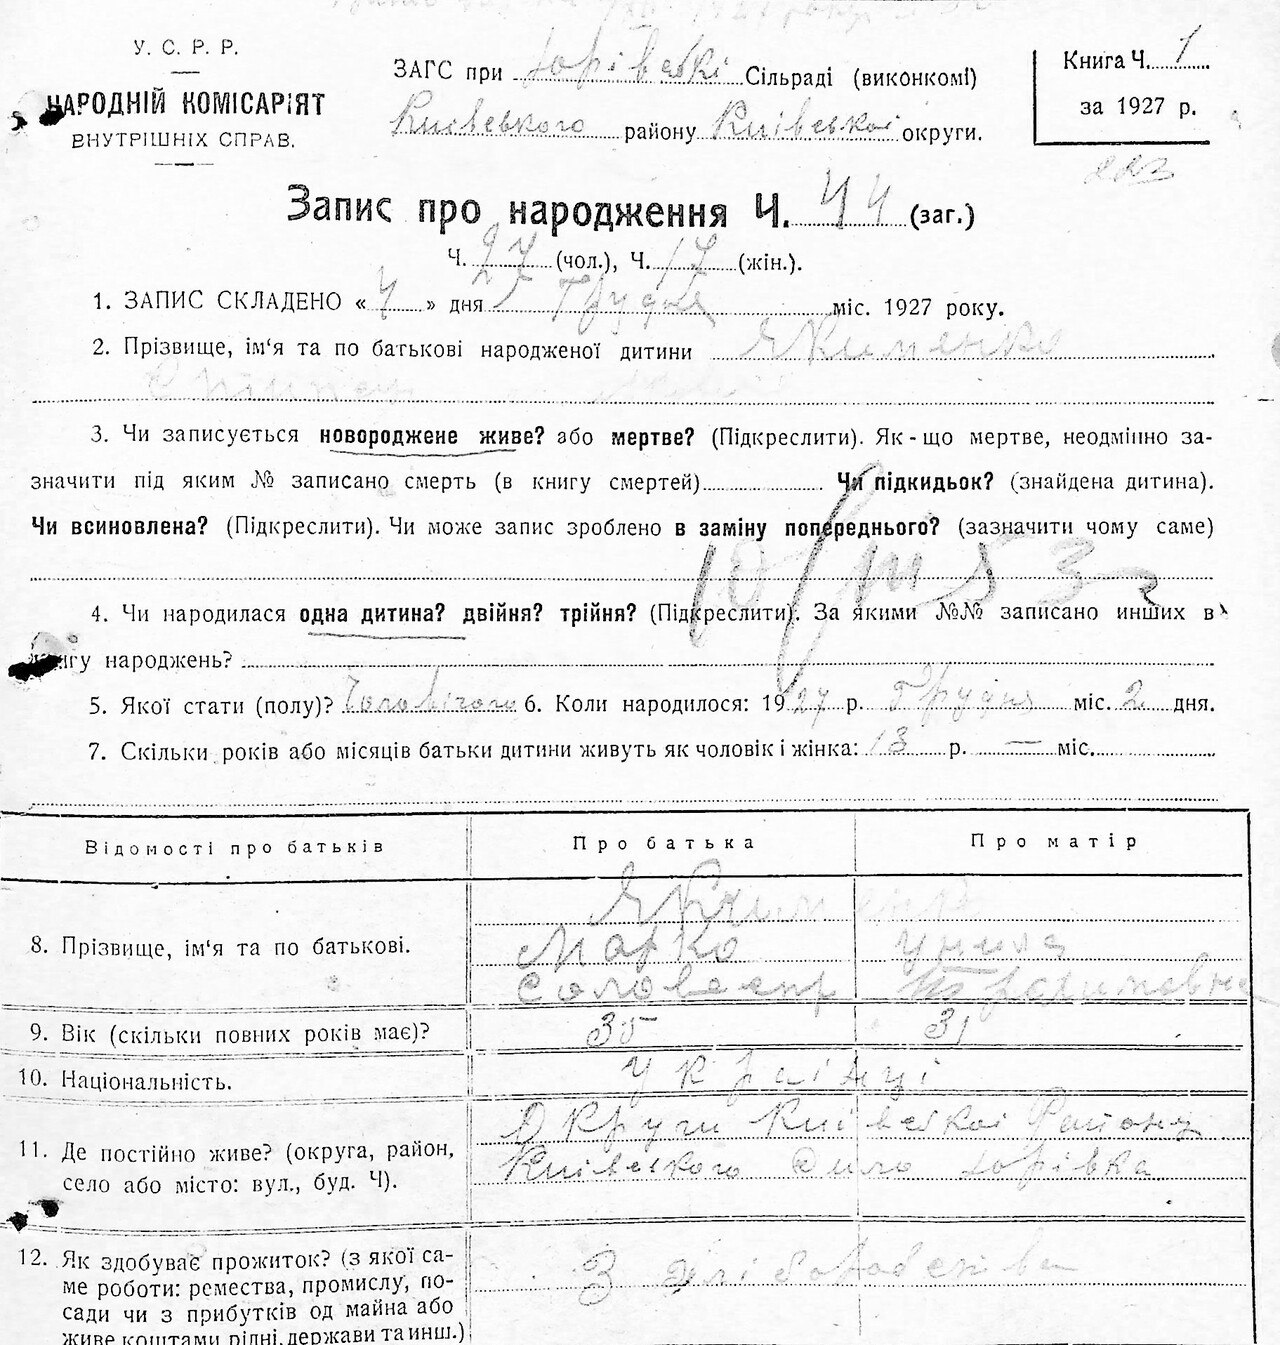 У. С. Р. Р.
НАРОДНІЙ КОМІСАРІЯТ
ВНУТРІШНІХ СПРАВ.
ЗАГС при Юрівській Сільраді (виконкомі)
Київського району Київської округи.
Книга Ч. 1
за 1927 р.
Запис про народження Ч. 44 (заг.)
Ч. 27 (чол.), Ч. 17 (жін.).
1. ЗАПИС СКЛАДЕНО « » дня Грудня міс. 1927 року.
2. Прізвище, ім‘я та по батькові народженої дитини Якименко
3. Чи записується новороджене живе? або мертве? (Підкреслити). Як-що мертве, неодмінно за-
значити під яким № записано смерть (в книгу смертей) Чи підкидьок? (знайдена дитина).
Чи всиновлена? (Підкреслити). Чи може запис зроблено в заміну попереднього? (зазначити чому саме)
4. Чи народилася одна дитина? двійня? трійня? (Підкреслити). За якими №№ записано инших в
книгу народжень?
5. Якої стати (полу)? Чоловічого 6. Коли народилося: 1927 р. Грудня міс. 2 дня.
7. Скільки років або місяців батьки дитини живуть як чоловік і жінка: 13 р. — міс.
Відомості про батьків
Про батька
Про матір
8. Прізвище, ім‘я та по батькові.
Якименко
Марко
9. Вік (скільки повних років має)?
35
31
10. Національність.
Українці
11. Де постійно живе? (округа, район,
село або місто: вул., буд. Ч).
Округи Київської Району
Київського Юрівка
12. Як здобуває прожиток? (з якої са-
ме роботи: ремества, промислу, по-
сади чи з прибутків од майна або
живе коштами рідні, держави та инш.)
З хліборобства